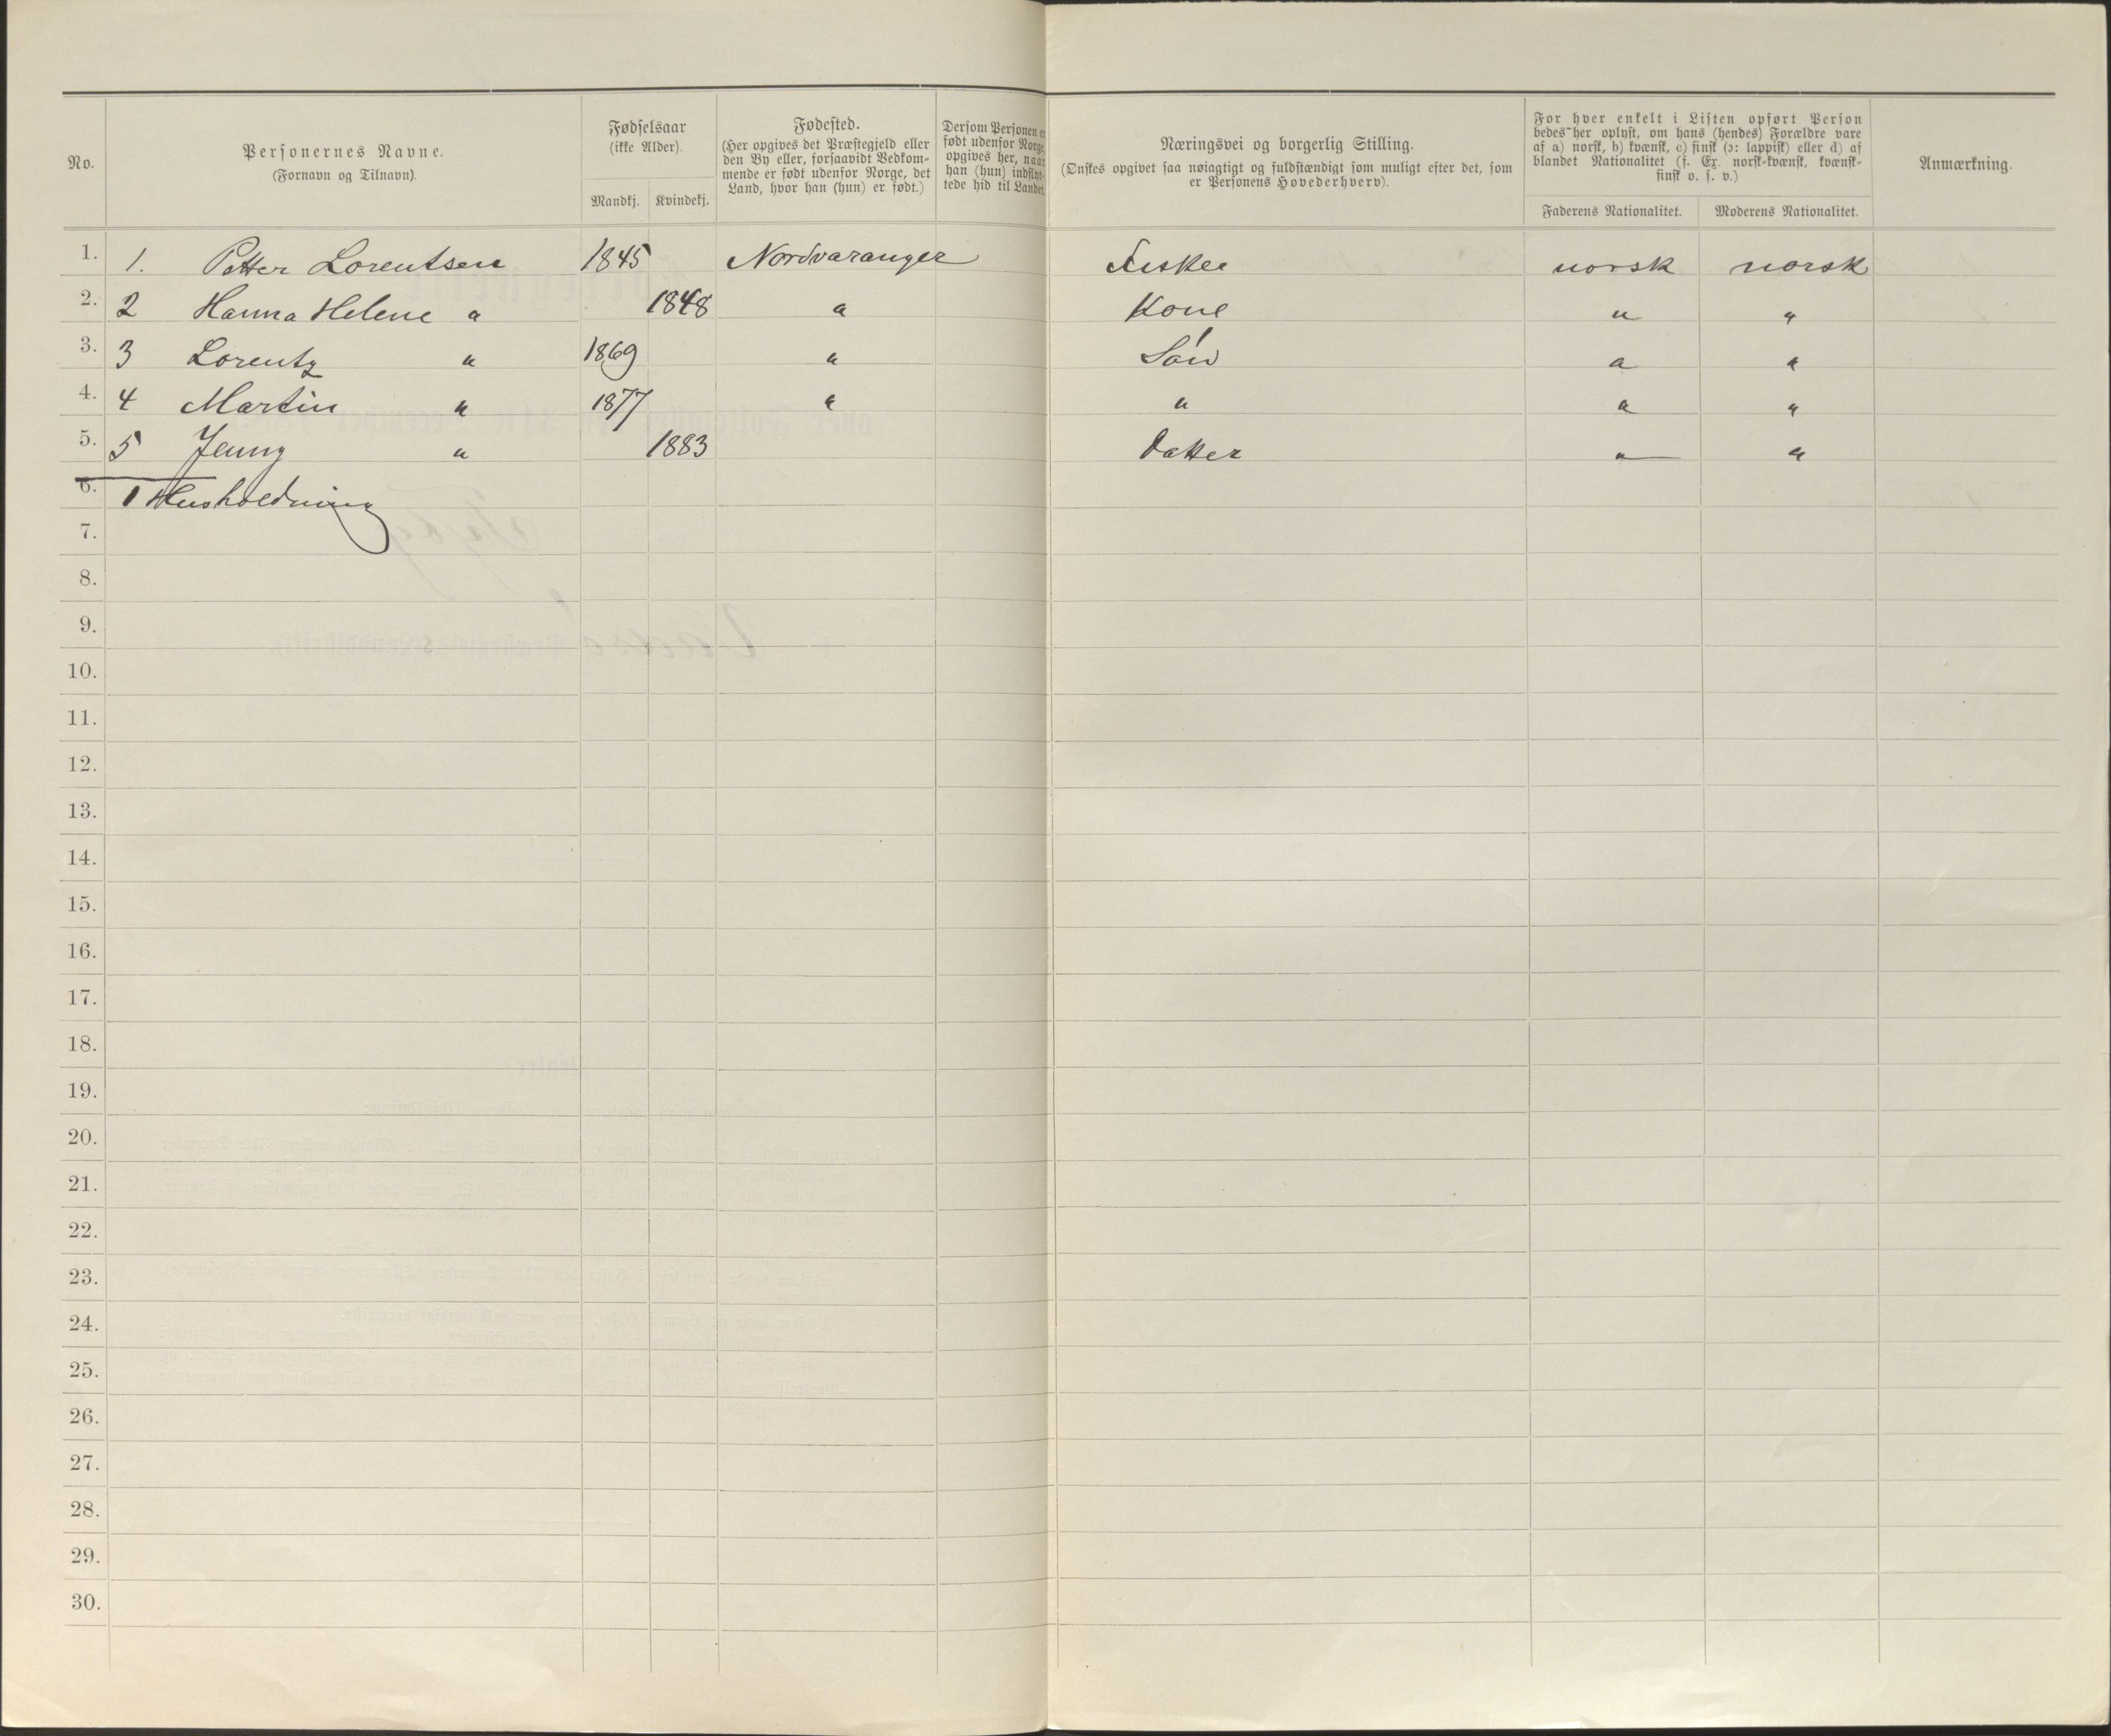 No.
Personernes Navne.
(Fornavn og Tilnavn).
Fødselsaar
(ikke Alder).
Mandkj. Kvindekj.
Fødested.
(Her opgives det Præstegjeld eller
den By eller, forsaavidt Vedkom-
mende er født udenfor Norge, det
Land, hvor han (hun) er født.)
Dersom Personen er
født udenfor Norge,
opgives her, naar
han (hun) indflyt-
tede hid til Landet.
Næringsvei og borgerlig Stilling.
(Ønskes opgivet saa nøiagtigt og fuldstændigt som muligt efter det, som
er Personens Hovederhverv).
For hver enkelt i Listen opført Person
bedes her oplyst, om hans (hendes) Forældre vare
af a) norsk, b) kvænsk, c) finsk (ɔ: lappisk) eller d) af
blandet Nationalitet (f. Ex. norsk-kvænsk, kvænsk-
finsk o. s. v.)
Faderens Nationalitet. Moderens Nationalitet.
Anmærkning.
1. 1. Petter Lorentsen 1845 Nordvaranger Fisker norsk norsk
2. 2 Hanna Helene " 1848 " Kone " "
3. 3 Lorentz " 1869 " Søn " "
4. 4 Martin " 1877 " " " "
5. 5 Jenny " 1883 Datter " "
6. 1 Husholdning
7.
8.
9.
10.
11.
12.
13.
14.
15.
16.
17.
18.
19.
20.
21.
22.
23.
24.
25.
26.
27.
28.
29.
30.